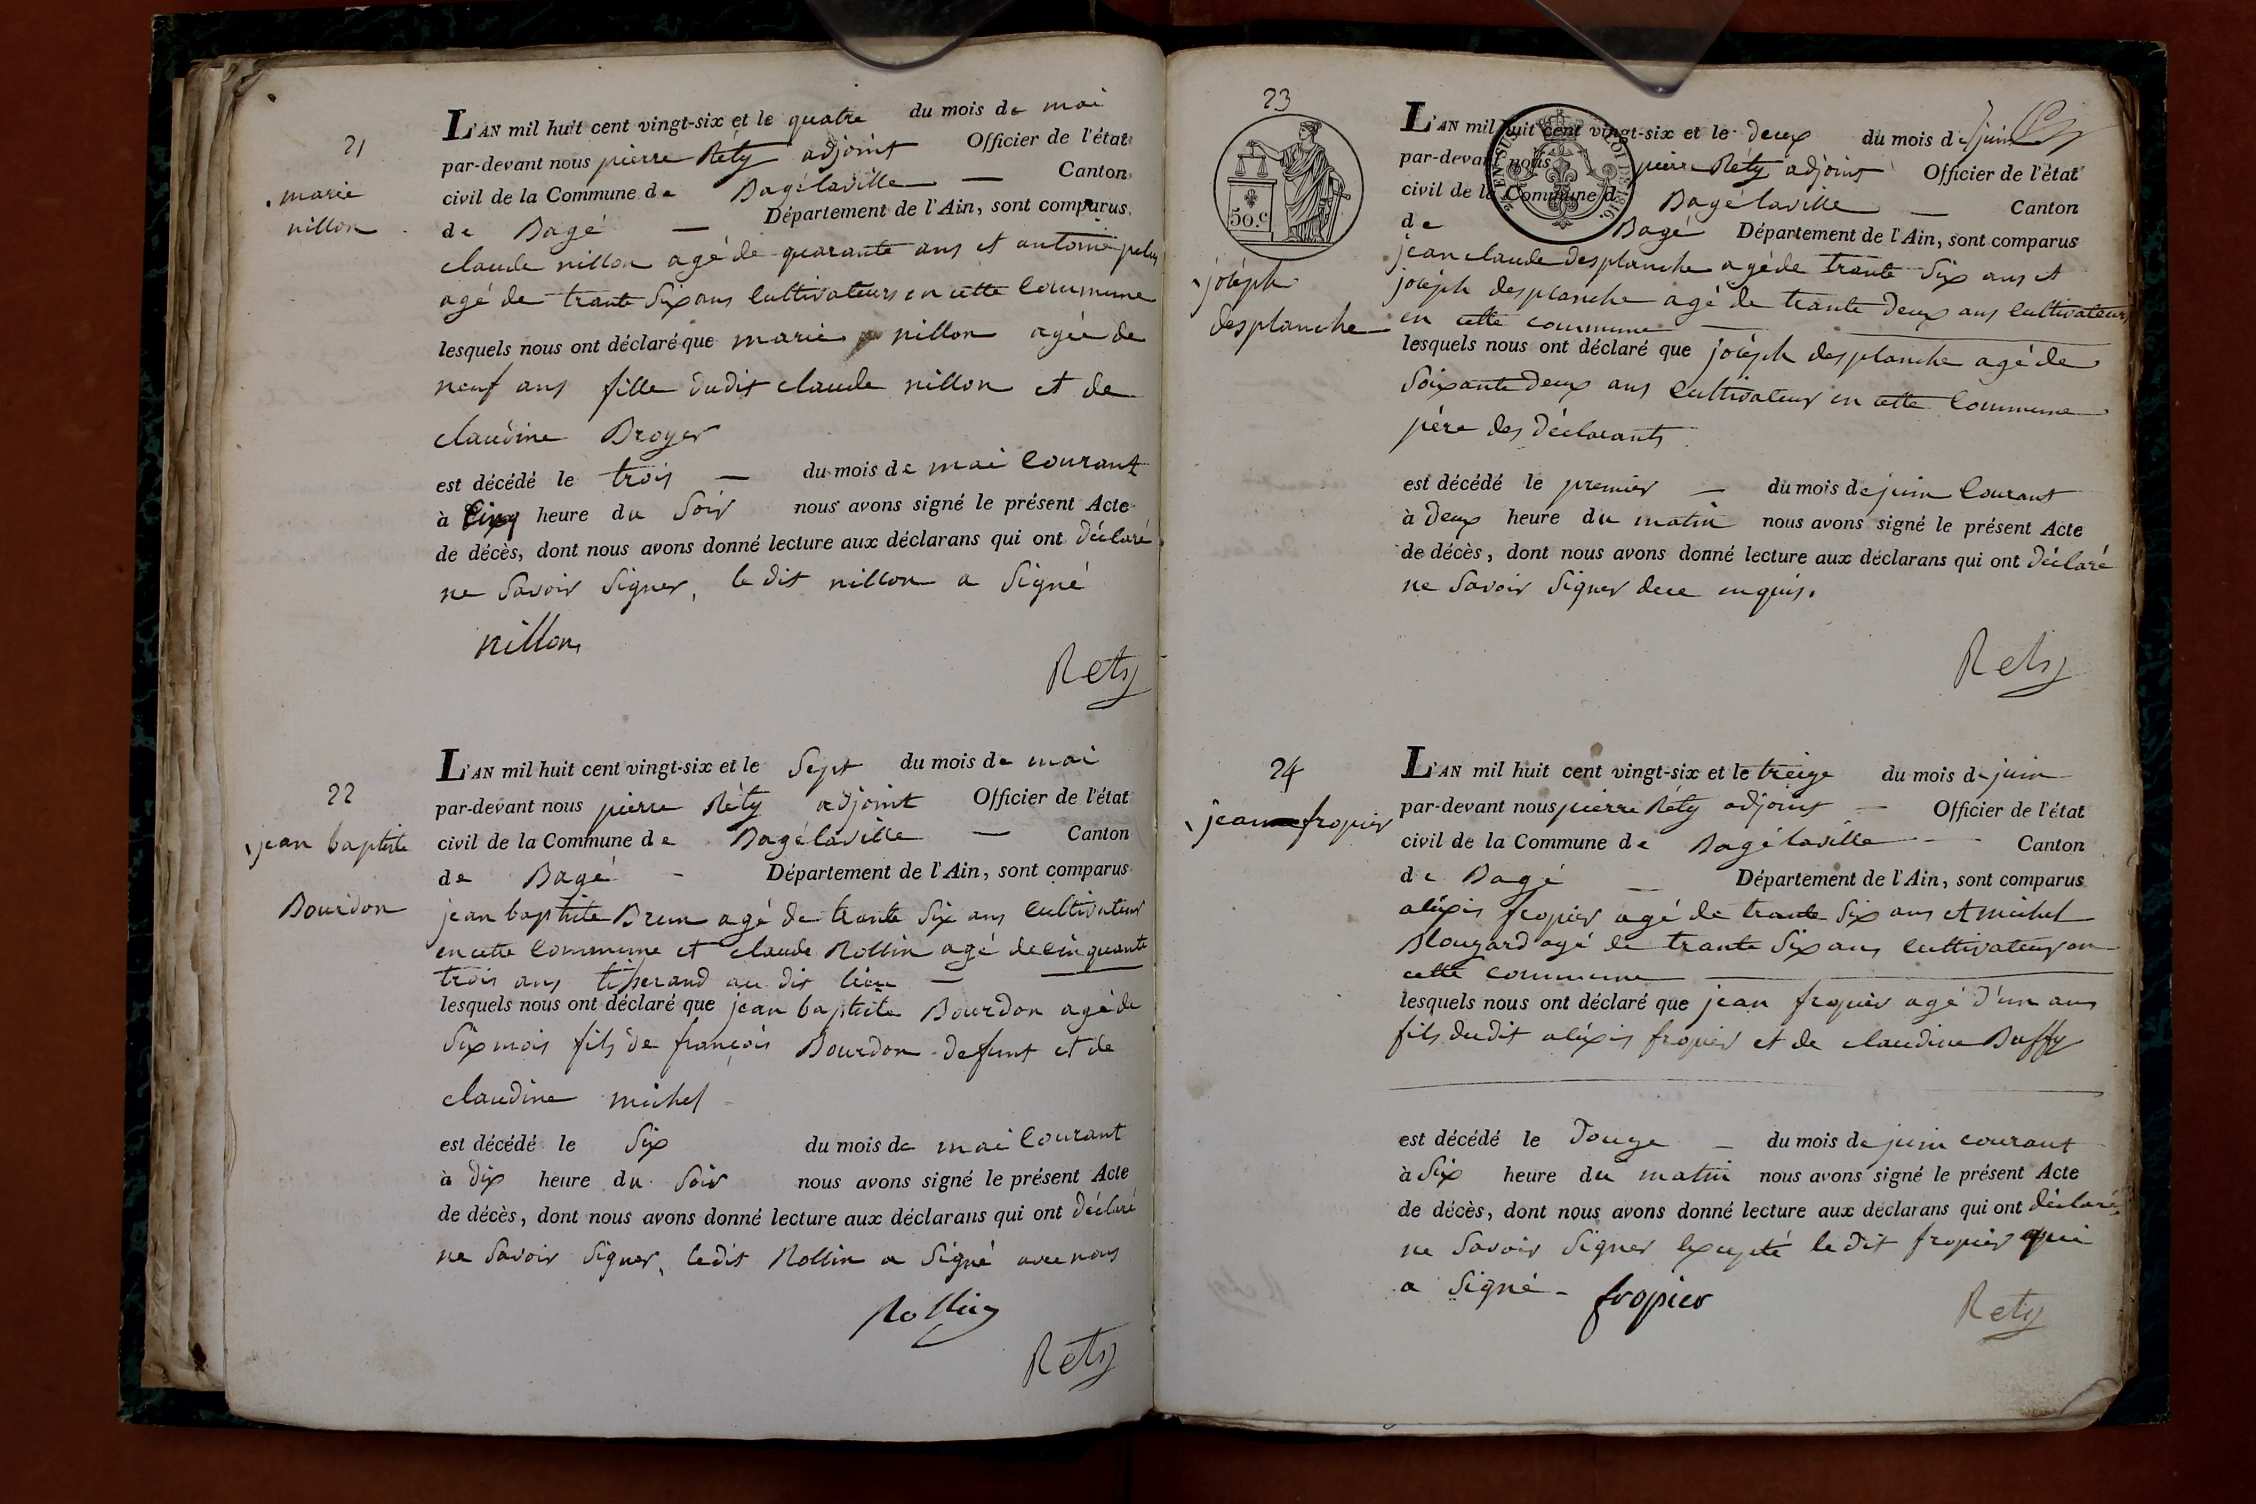 21
marie
nillon
L'AN mil huit cent vingt-six et le quatre du mois de mai
par-devant nous pierre Réty adjoint Officier de l'état
civil de la Commune de Bagélaville — Canton
de Bagé — Département de l'Ain, sont comparus
claude nillon agé de quarante ans et antoine
agé de trante six ans cultivateurs en cette commune
lesquels nous ont déclaré que marie nillon agée de
neuf ans fille dudit claude nillon et de
claudine Broyer
est décédé le trois — du mois de mai courant
à cinq heure du soir nous avons signé le présent Acte
de décès, dont nous avons donné lecture aux déclarans qui ont déclaré
ne savoir signer, le dit nillon a signé
nillon
Rety
22
jean baptiste
Bourdon
L'AN mil huit cent vingt-six et le sept du mois de mai
par-devant nous pierre Réty adjoint Officier de l'état
civil de la Commune de Bagélaville — Canton
de Bagé - Département de l'Ain, sont comparus
jean baptiste Brun agé de trante six ans cultivateur
en cette commune et claude Rollin agé de cinquante
trois ans tisserand au dit lieu —
lesquels nous ont déclaré que jean baptiste Bourdon agé de
six mois fils de françois Bourdon defunt et de
claudine michel
est décédé le six du mois de mai courant
à dix heure du soir nous avons signé le présent Acte
de décès, dont nous avons donné lecture aux déclarans qui ont déclaré
ne savoir signer, ledit Rollin a signé avec nous
Rollin
Rety
23
50.c
joséph
desplanche
L'AN mil huit cent vingt-six et le deux du mois de juin
par-devant nous pierre Réty adjoint Officier de l'état
civil de la Commune de Bagélaville — Canton
de Bagé Département de l'Ain, sont comparus
jean claude desplanche agé de trante six ans et
joséph desplanche agé de trante deux ans cultivateurs
en cette commune
lesquels nous ont déclaré que joséph desplanche agé de
soixante deux ans cultivateur en cette commune
père des déclarants
est décédé le premier — du mois de juin courant
à deux heure du matin nous avons signé le présent Acte
de décès, dont nous avons donné lecture aux déclarans qui ont déclaré
ne savoir signer de ce enquis.
Rety
24
jean fropier
L'AN mil huit cent vingt-six et le treize du mois de juin
par-devant nous pierre Réty adjoint — Officier de l'état
civil de la Commune de Bagélaville - - Canton
de Bagé — Département de l'Ain, sont comparus
aléxis fropier agé de trante six ans et michel
Blouzard agé de trante six ans cultivateurs en
cette commune
lesquels nous ont déclaré que jean fropier agé d'un ans
fils dudit aléxis fropier et de claudine Buffy
est décédé le douze — du mois de juin courant
à six heure du matin nous avons signé le présent Acte
de décès, dont nous avons donné lecture aux déclarans qui ont déclaré
ne savoir signer excepté ledit fropier qui
a signé - fropier
Rety